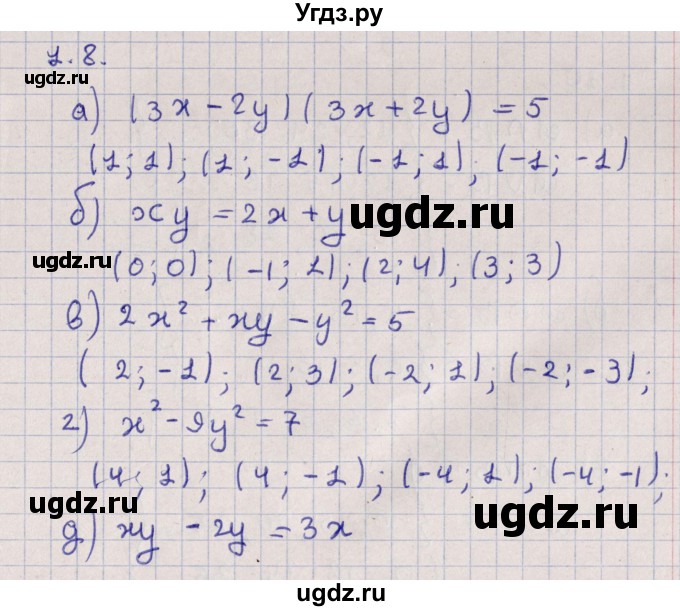 Угдз.ру
1.8.
ugdz.ru
ugdz.ru
а) (3x - 2y)(3x + 2y) = 5
(1; 1); (1; -1); (-1; 1); (-1; -1)
б) xy = 2x + y
ugdz.ru
ugdz.ru
(0; 0); (-1; 1); (2; 4); (3; 3)
в) 2x² + xy - y² = 5
(2; -1); (2; 3); (-2; 1); (-2; -3);
г) x² - 9y² = 7
(4; 1); (4; -1); (-4; 1); (-4; -1);
ugdz.ru
ugdz.ru
д) xy - 2y = 3x
ugdz.ru